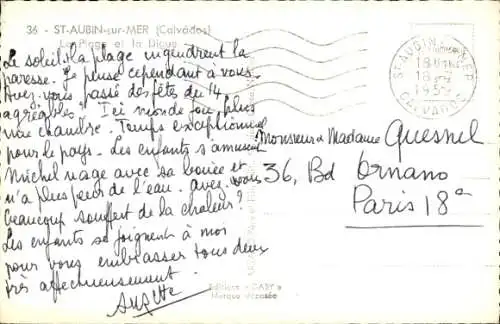 36 - ST-AUBIN-sur-MER (Calvados)
La Plage et la Digue
Le soleil, la plage engendrent la
paresse. Je pense cependant à vous.
Avez vous passé des fêtes du 14
agréables? Ici monde fou, plus
une chambre. Temps exceptionnel
pour le pays. Les enfants s'amusent
Michel nage avec sa bouée et
n'a plus peur de l'eau. avez vous
beaucoup souffert de la chaleur?
Les enfants se joignent à moi
pour vous embrasser tous deux
très affectueusement.
ST-AUBIN-S-MER
CALVADOS
Monsieur et Madame Quesnel
36, Bd Ornano
Paris 18e
Editions "GABY"
Marque déposée